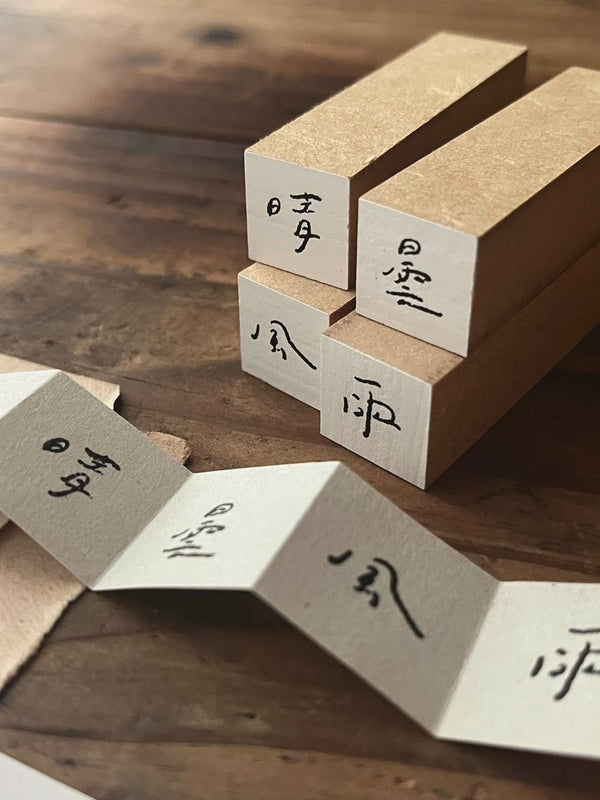 晴 曇
風 雨
晴 曇 風 雨